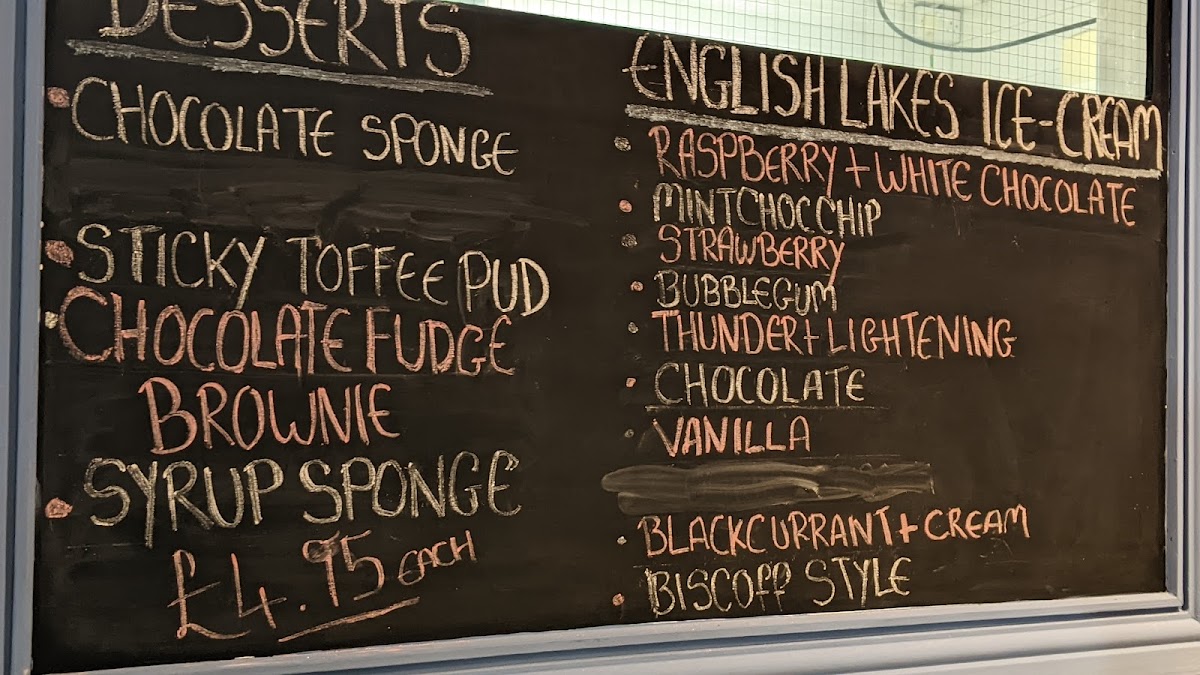 DESSERTS
CHOCOLATE SPONGE
STICKY TOFFEE PUD
CHOCOLATE FUDGE
BROWNIE
SYRUP SPONGE
£4.95 EACH
ENGLISH LAKES ICE-CREAM
RASPBERRY + WHITE CHOCOLATE
MINT CHOC CHIP
STRAWBERRY
BUBBLEGUM
THUNDER + LIGHTENING
CHOCOLATE
VANILLA
BLACKCURRANT + CREAM
BISCOFF STYLE